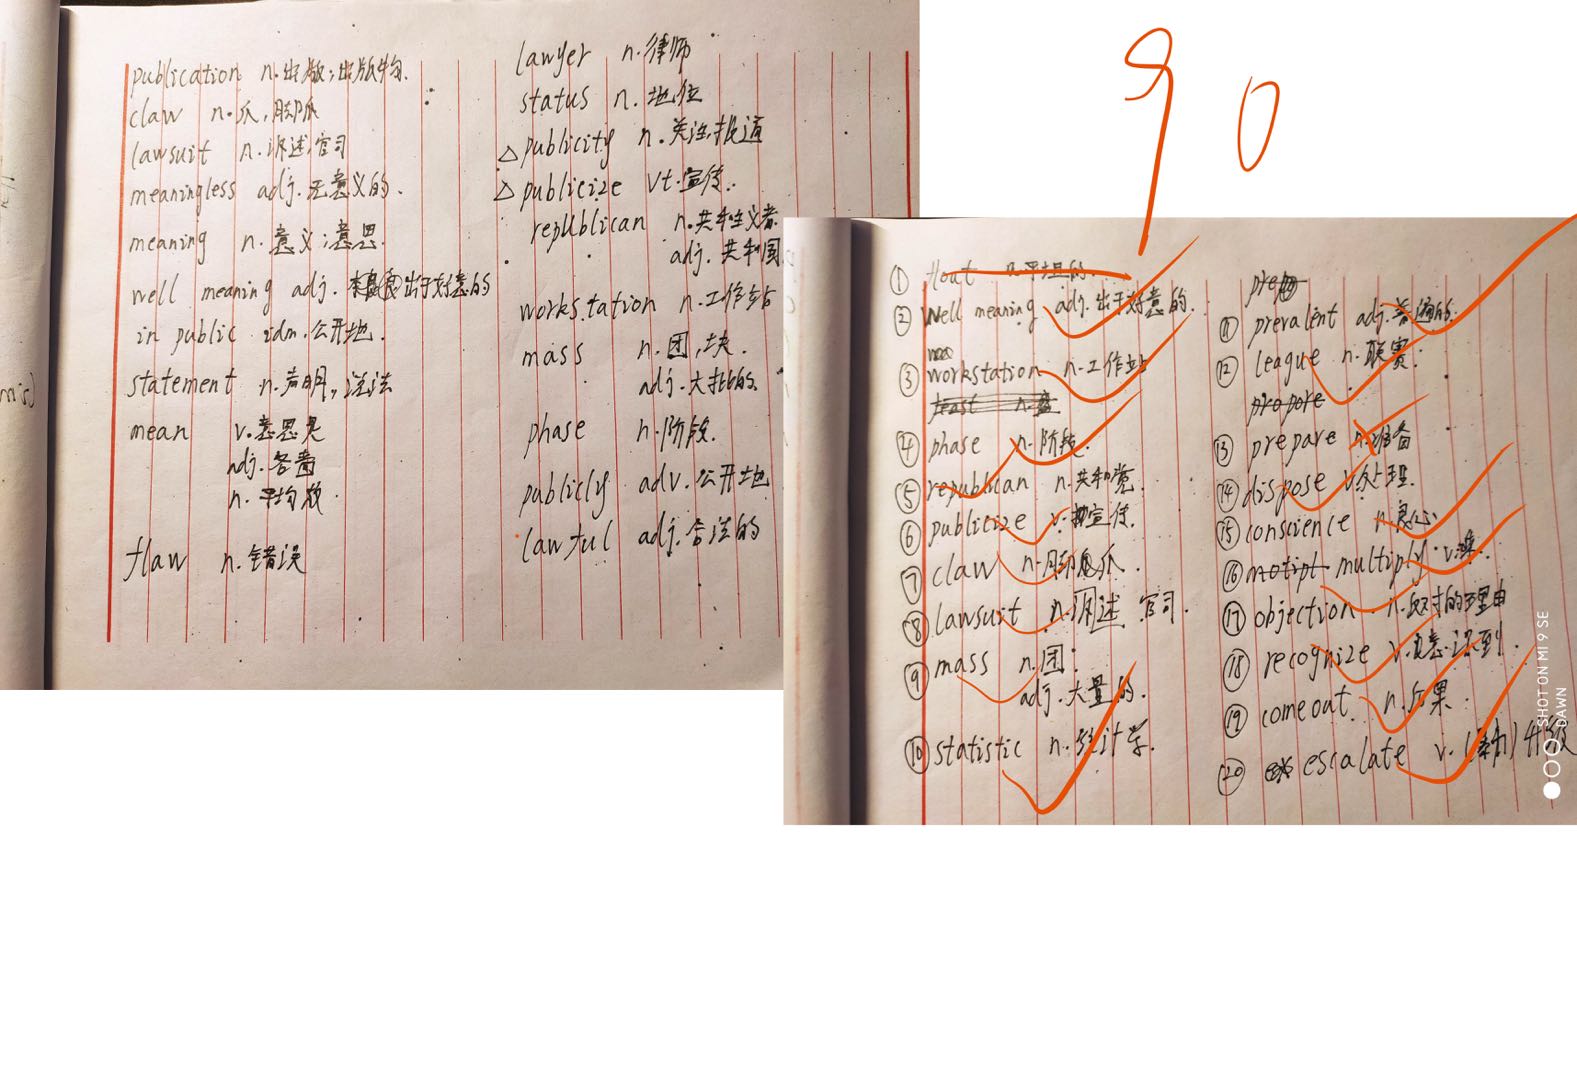 publication n.出版;出版物.
claw n.爪,脚爪
lawsuit n.诉述,官司
meaningless adj.无意义的.
meaning n.意义;意思.
well meaning adj. 出于好意的
in public idm.公开地.
statement n.声明,说法
mean v.意思是
adj.吝啬
n.平均数.
flaw n.错误
lawyer n.律师
status n.地位
△publicity n.关注,报道
△publicize vt.宣传.
republican n.共和主义者.
adj.共和国
workstation n.工作站
mass n.团,块.
adj.大批的.
phase n.阶段.
publicly adv.公开地
lawful adj.合法的
90
① flout n.平坦的.
② well meaning adj.出于好意的.
③ workstation n.工作站
④ phase n.阶段.
⑤ republican n.共和党.
⑥ publicize v.宣传.
⑦ claw n.脚爪.
⑧ lawsuit n.诉述 官司.
⑨ mass n.团.
adj.大量的.
⑩ statistic n.统计学.
⑪ prevalent adj.普遍的.
⑫ league n.联赛.
propore
⑬ prepare 准备
⑭ dispose v.处理.
⑮ conscience n.良心.
⑯ multiply v.乘.
⑰ objection n.反对的理由
⑱ recognize v.意识到.
⑲ comeout n.后果.
⑳ escalate v. 升级
SHOT ON MI 9 SE
DAWN